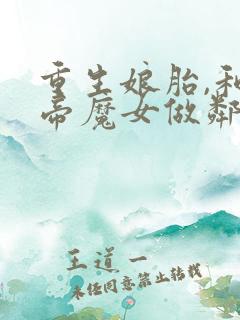 重生娘胎,和
帝魔女做鄰
王道一
未经同意禁止转载